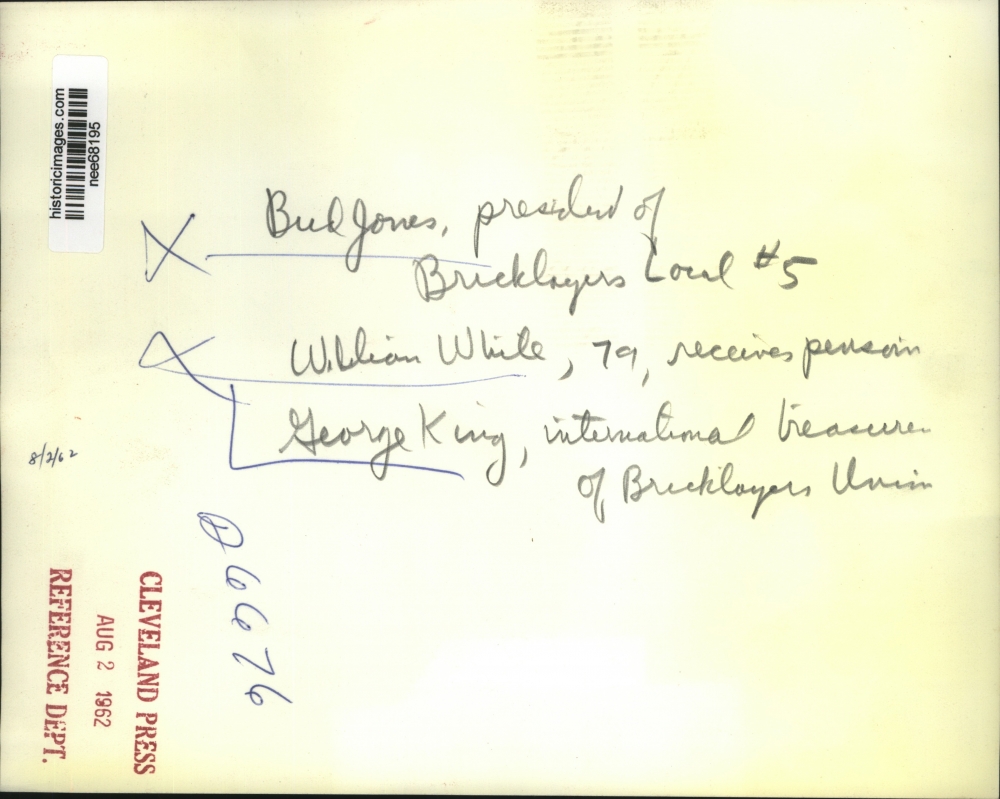 historicimages.com
nee68195
Bud Jones, president of
Bricklayers Local #5
William White, 79, receives pension
George King, international treasurer
of Bricklayers Union
8/2/62
D6676
CLEVELAND PRESS
AUG 2 1962
REFERENCE DEPT.